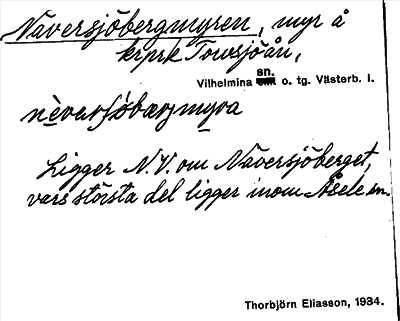 Naversjöbergmyren, myr å
krprk Torvsjöån,
sn.
Vilhelmina o. tg. Västerb. l.
nèvarʃöbærjmyra
Ligger N.V. om Naversjöberget,
vars största del ligger inom Åsele sn.
Thorbjörn Eliasson, 1934.